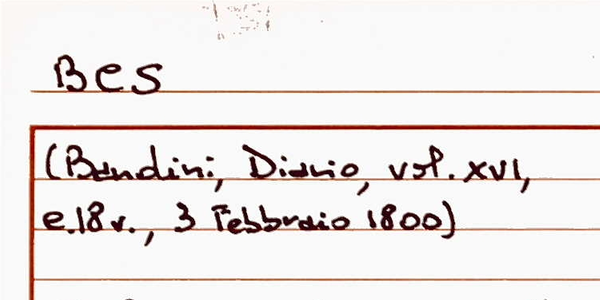 Bes
(Bandini, Diario, vol. XVI,
c.18v., 3 Febbraio 1800)